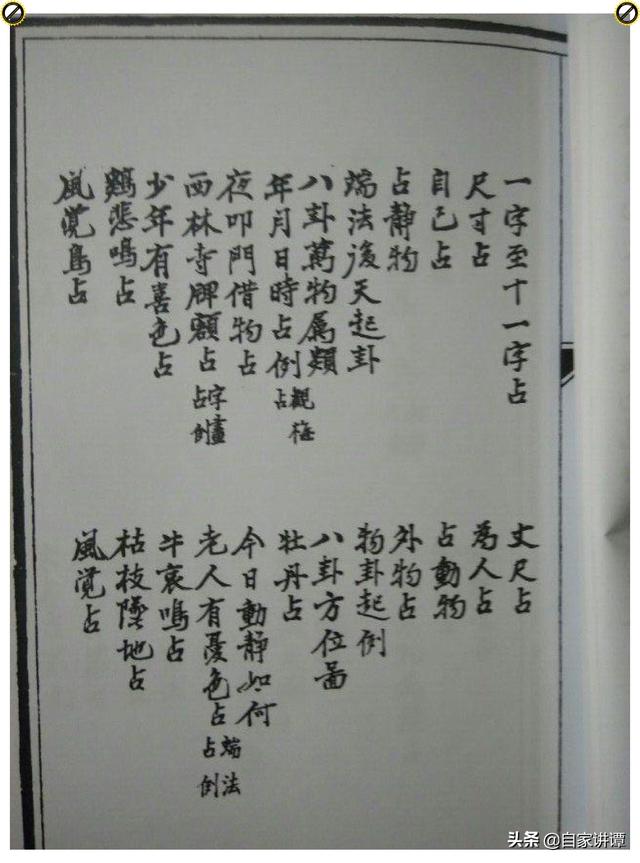 一字至十一字占 丈尺占
尺寸占 為人占
自己占 占動物
占静物 外物占
端法後天起卦 物卦起例
八卦萬物属類 八卦方位圖
年月日時占例 觀梅占 牡丹占
夜叩門借物占 今日動静如何
西林寺牌額占 字畫占例 老人有憂色占 端法占例
少年有喜色占 牛哀鳴占
鷄悲鳴占 枯枝墜地占
風覚鳥占 風覚占
头条 @自家讲谭